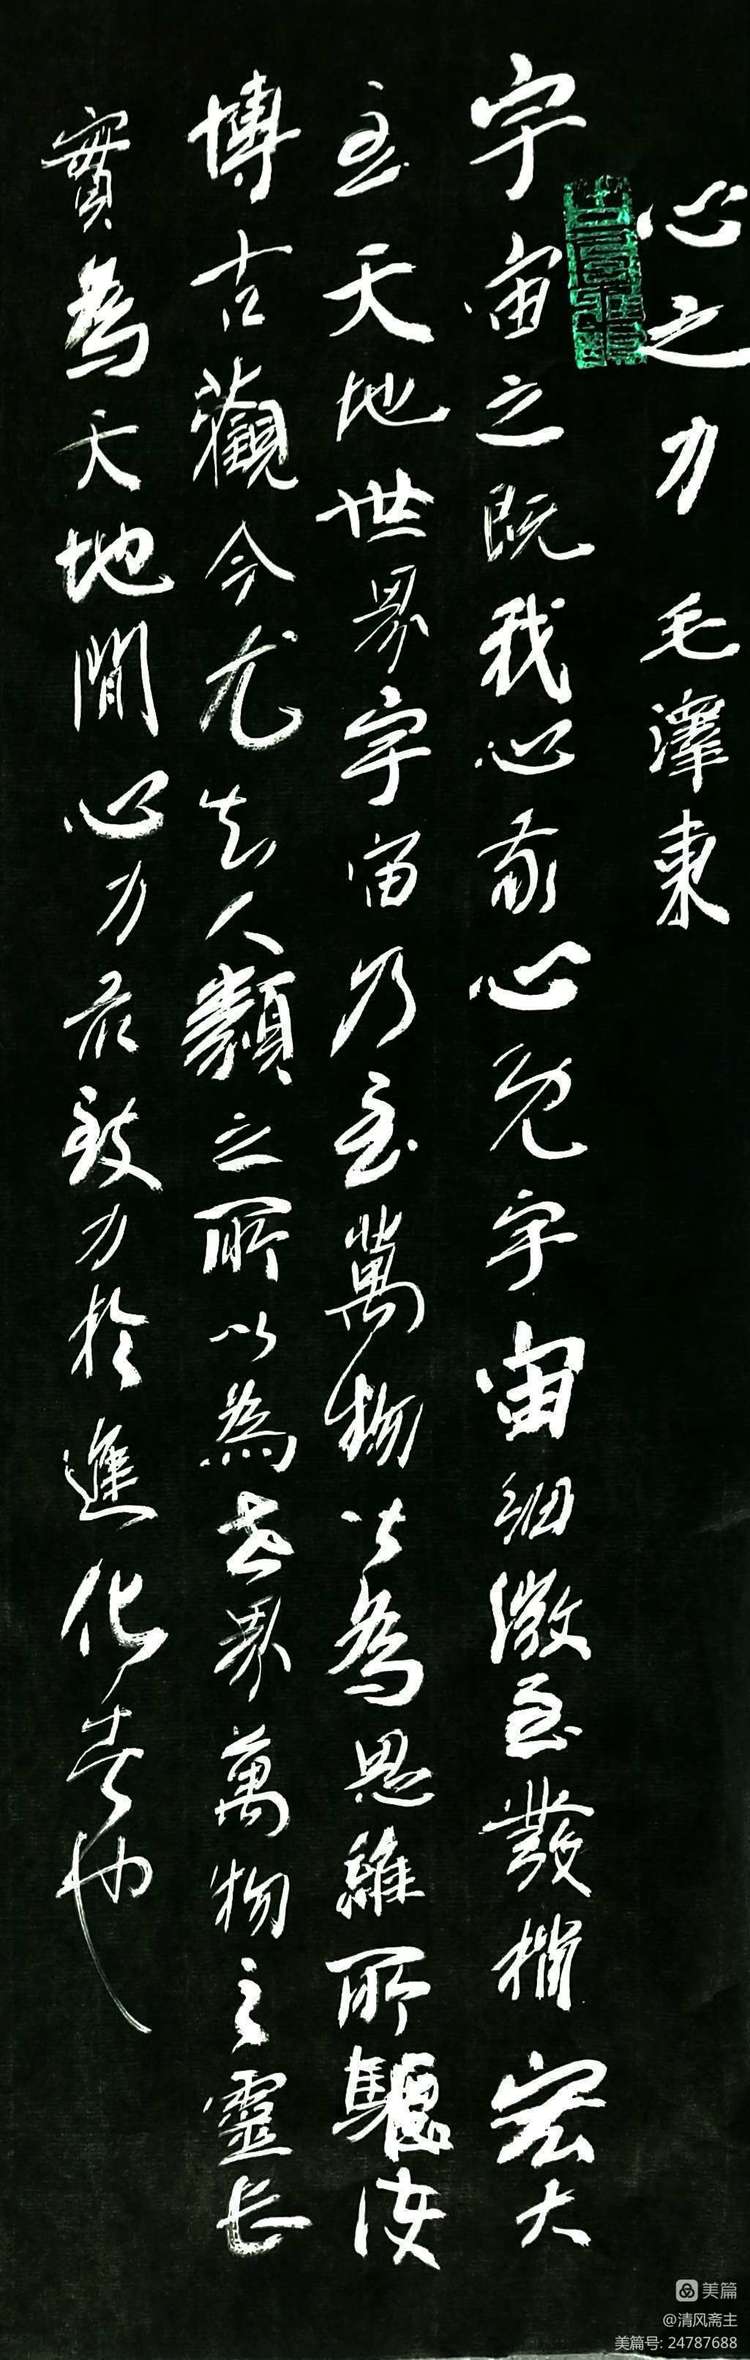 心之力 毛澤東
宇宙之既我心我心既宇宙細微至發梢宏大
至天地世界宇宙乃至萬物皆為思維所驅使
博古觀今尤知人類之所以為世界萬物之靈長
實為天地間心力最致力於進化者也
美篇
@清风斋主
美篇号: 24787688